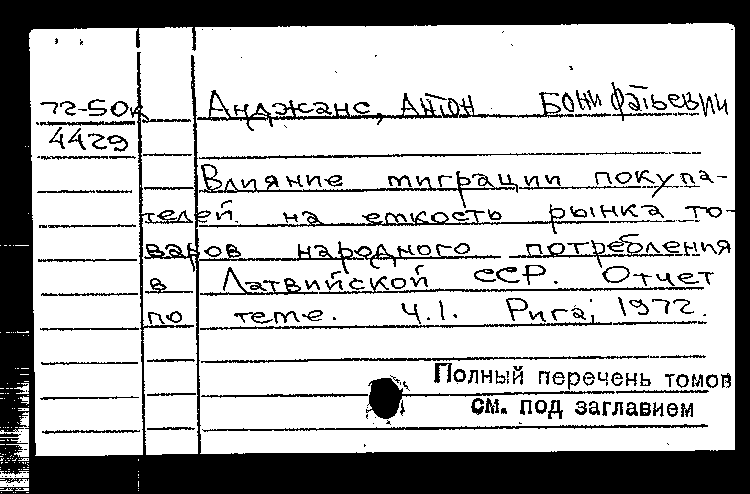 72-50к Анджанс, Антон Бонифатьевич
4429
Влияние миграции покупа-
телей на емкость рынка то-
варов народного потребления
в Латвийской ССР. Отчет
по теме. Ч.1. Рига, 1972.
Полный перечень томов
см. под заглавием